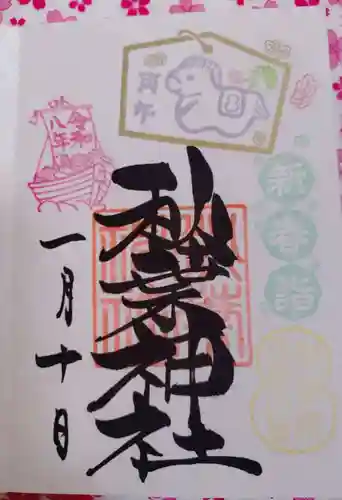 丙午
令和
八年
新春詣
秋葉神社
一月十日